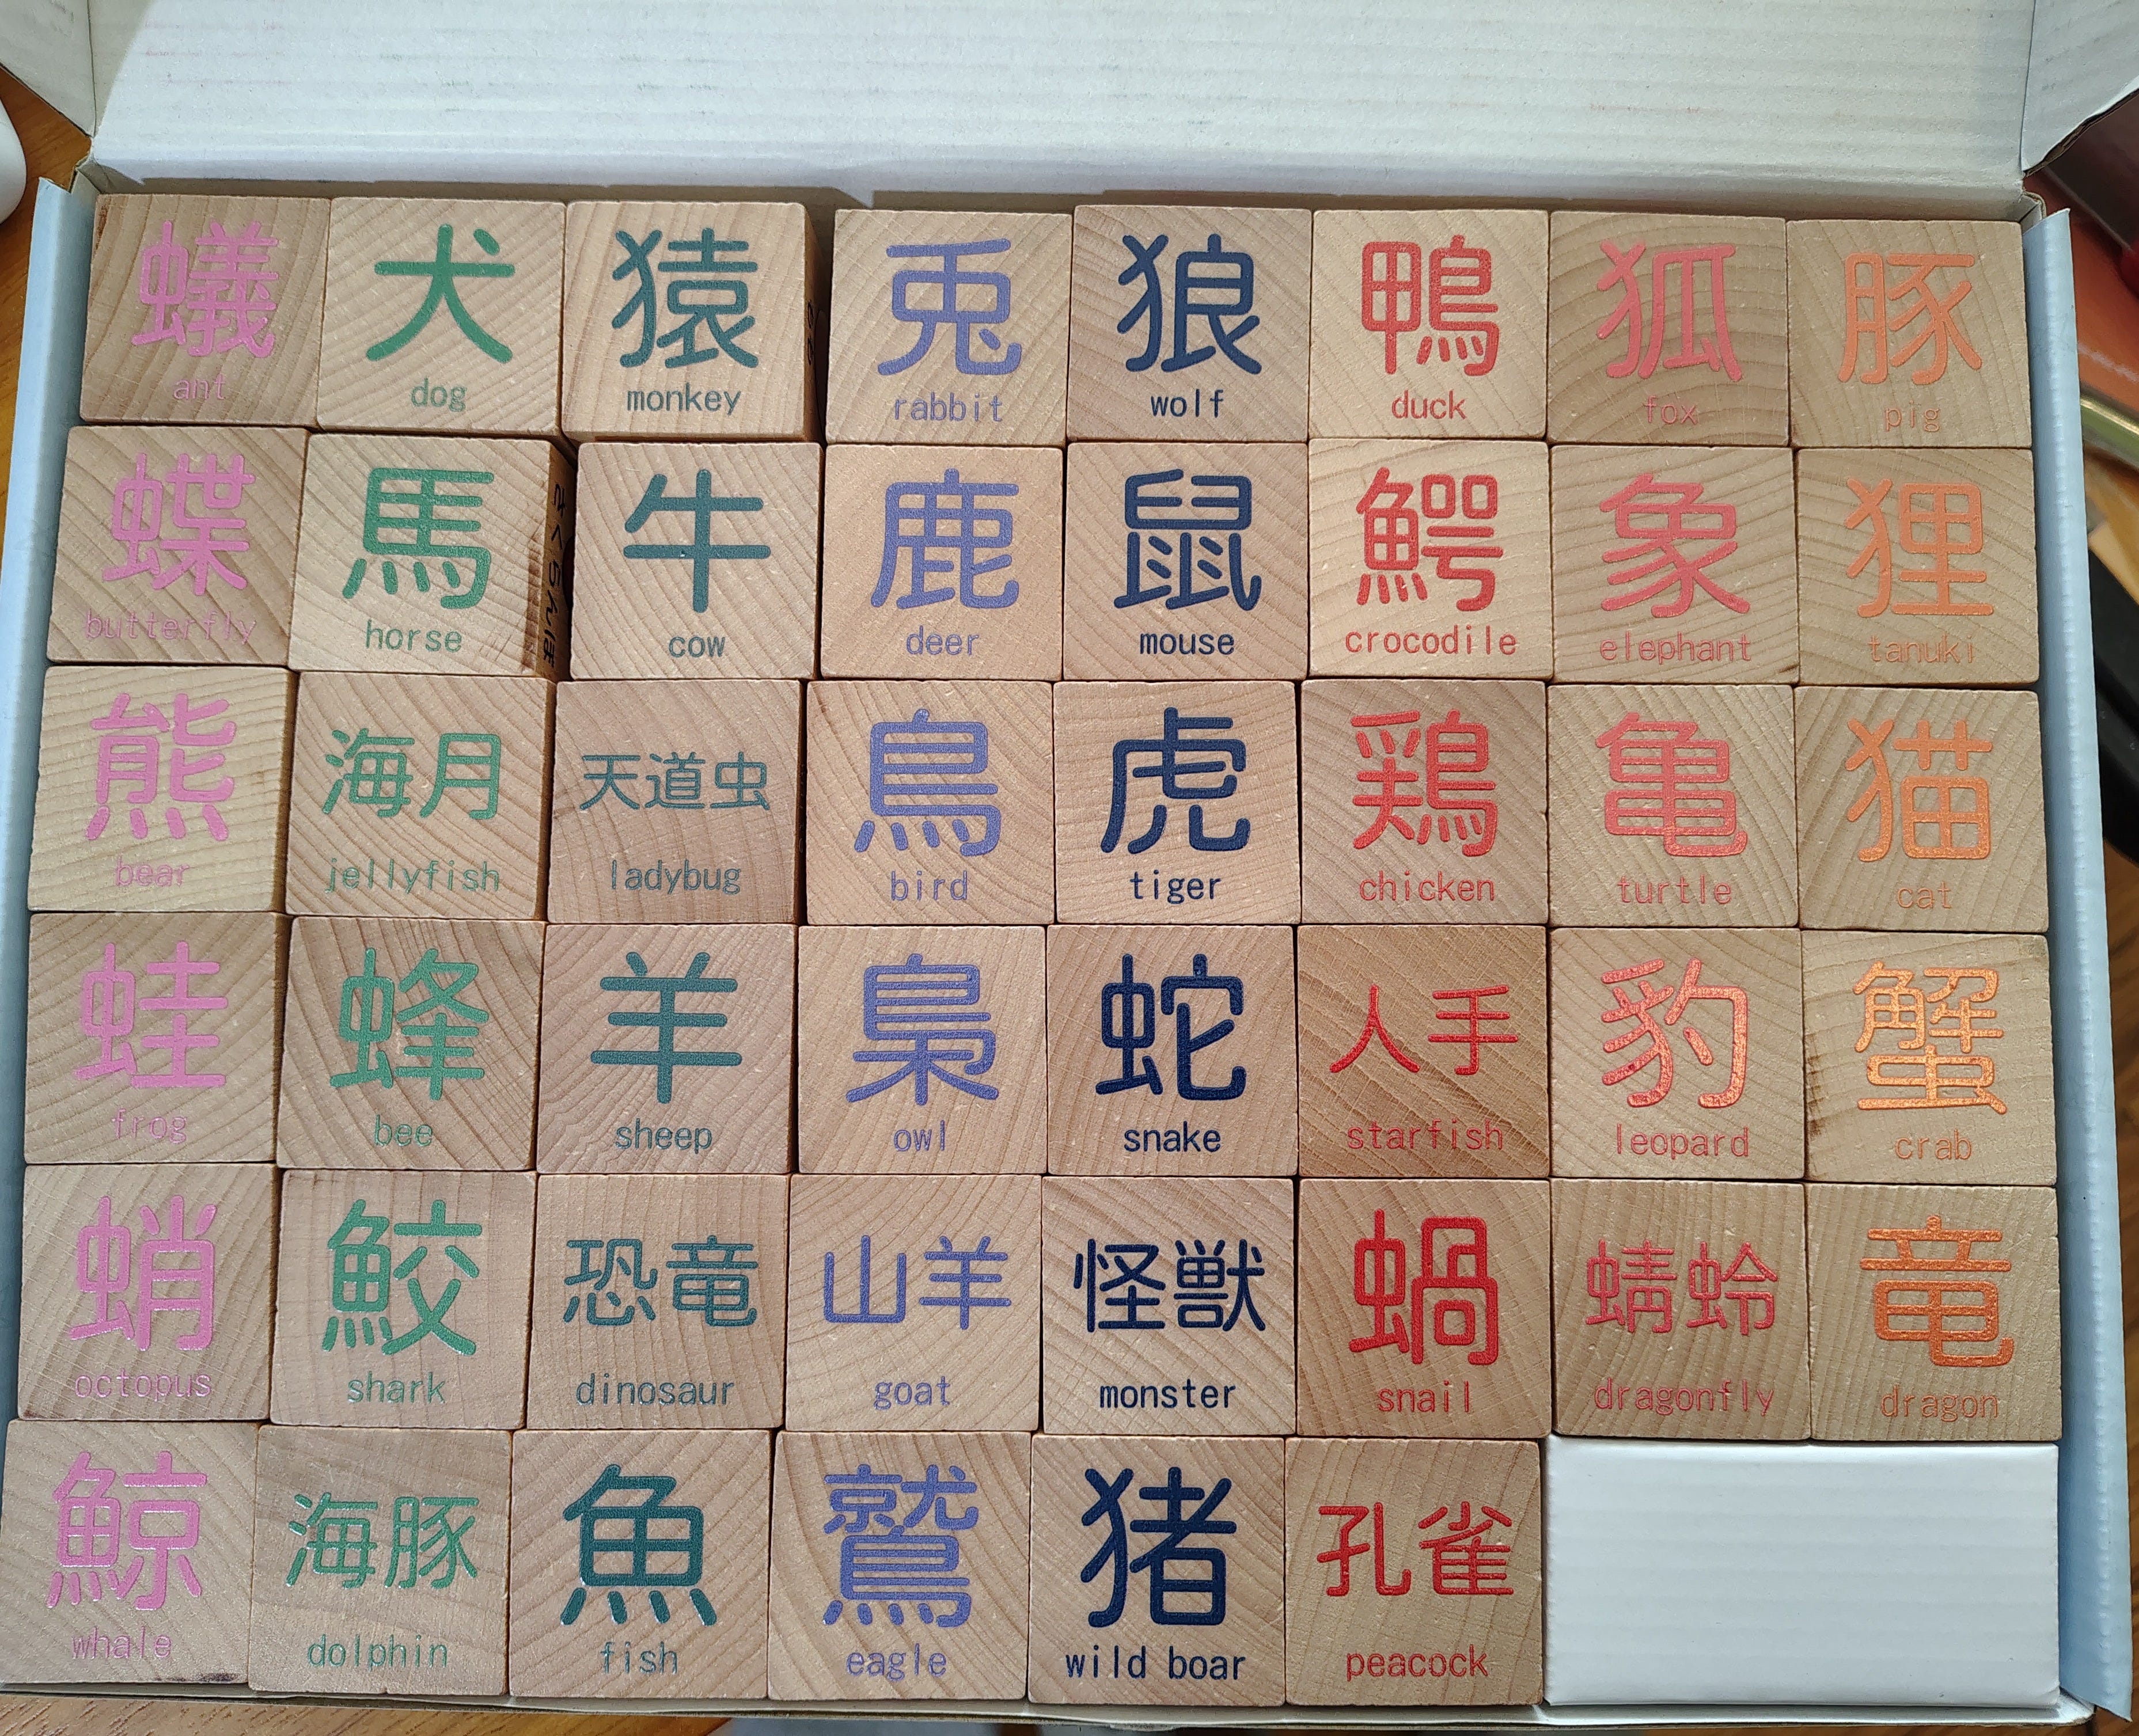 蟻
ant
犬
dog
猿
monkey
兎
rabbit
狼
wolf
鴨
duck
狐
fox
豚
pig
蝶
butterfly
馬
horse
さくらんぼ
牛
cow
鹿
deer
鼠
mouse
鰐
crocodile
象
elephant
狸
tanuki
熊
bear
海月
jellyfish
天道虫
ladybug
鳥
bird
虎
tiger
鶏
chicken
亀
turtle
猫
cat
蛙
frog
蜂
bee
羊
sheep
梟
owl
蛇
snake
人手
starfish
豹
leopard
蟹
crab
蛸
octopus
鮫
shark
恐竜
dinosaur
山羊
goat
怪獣
monster
蝸
snail
蜻蛉
dragonfly
竜
dragon
鯨
whale
海豚
dolphin
魚
fish
鷲
eagle
猪
wild boar
孔雀
peacock